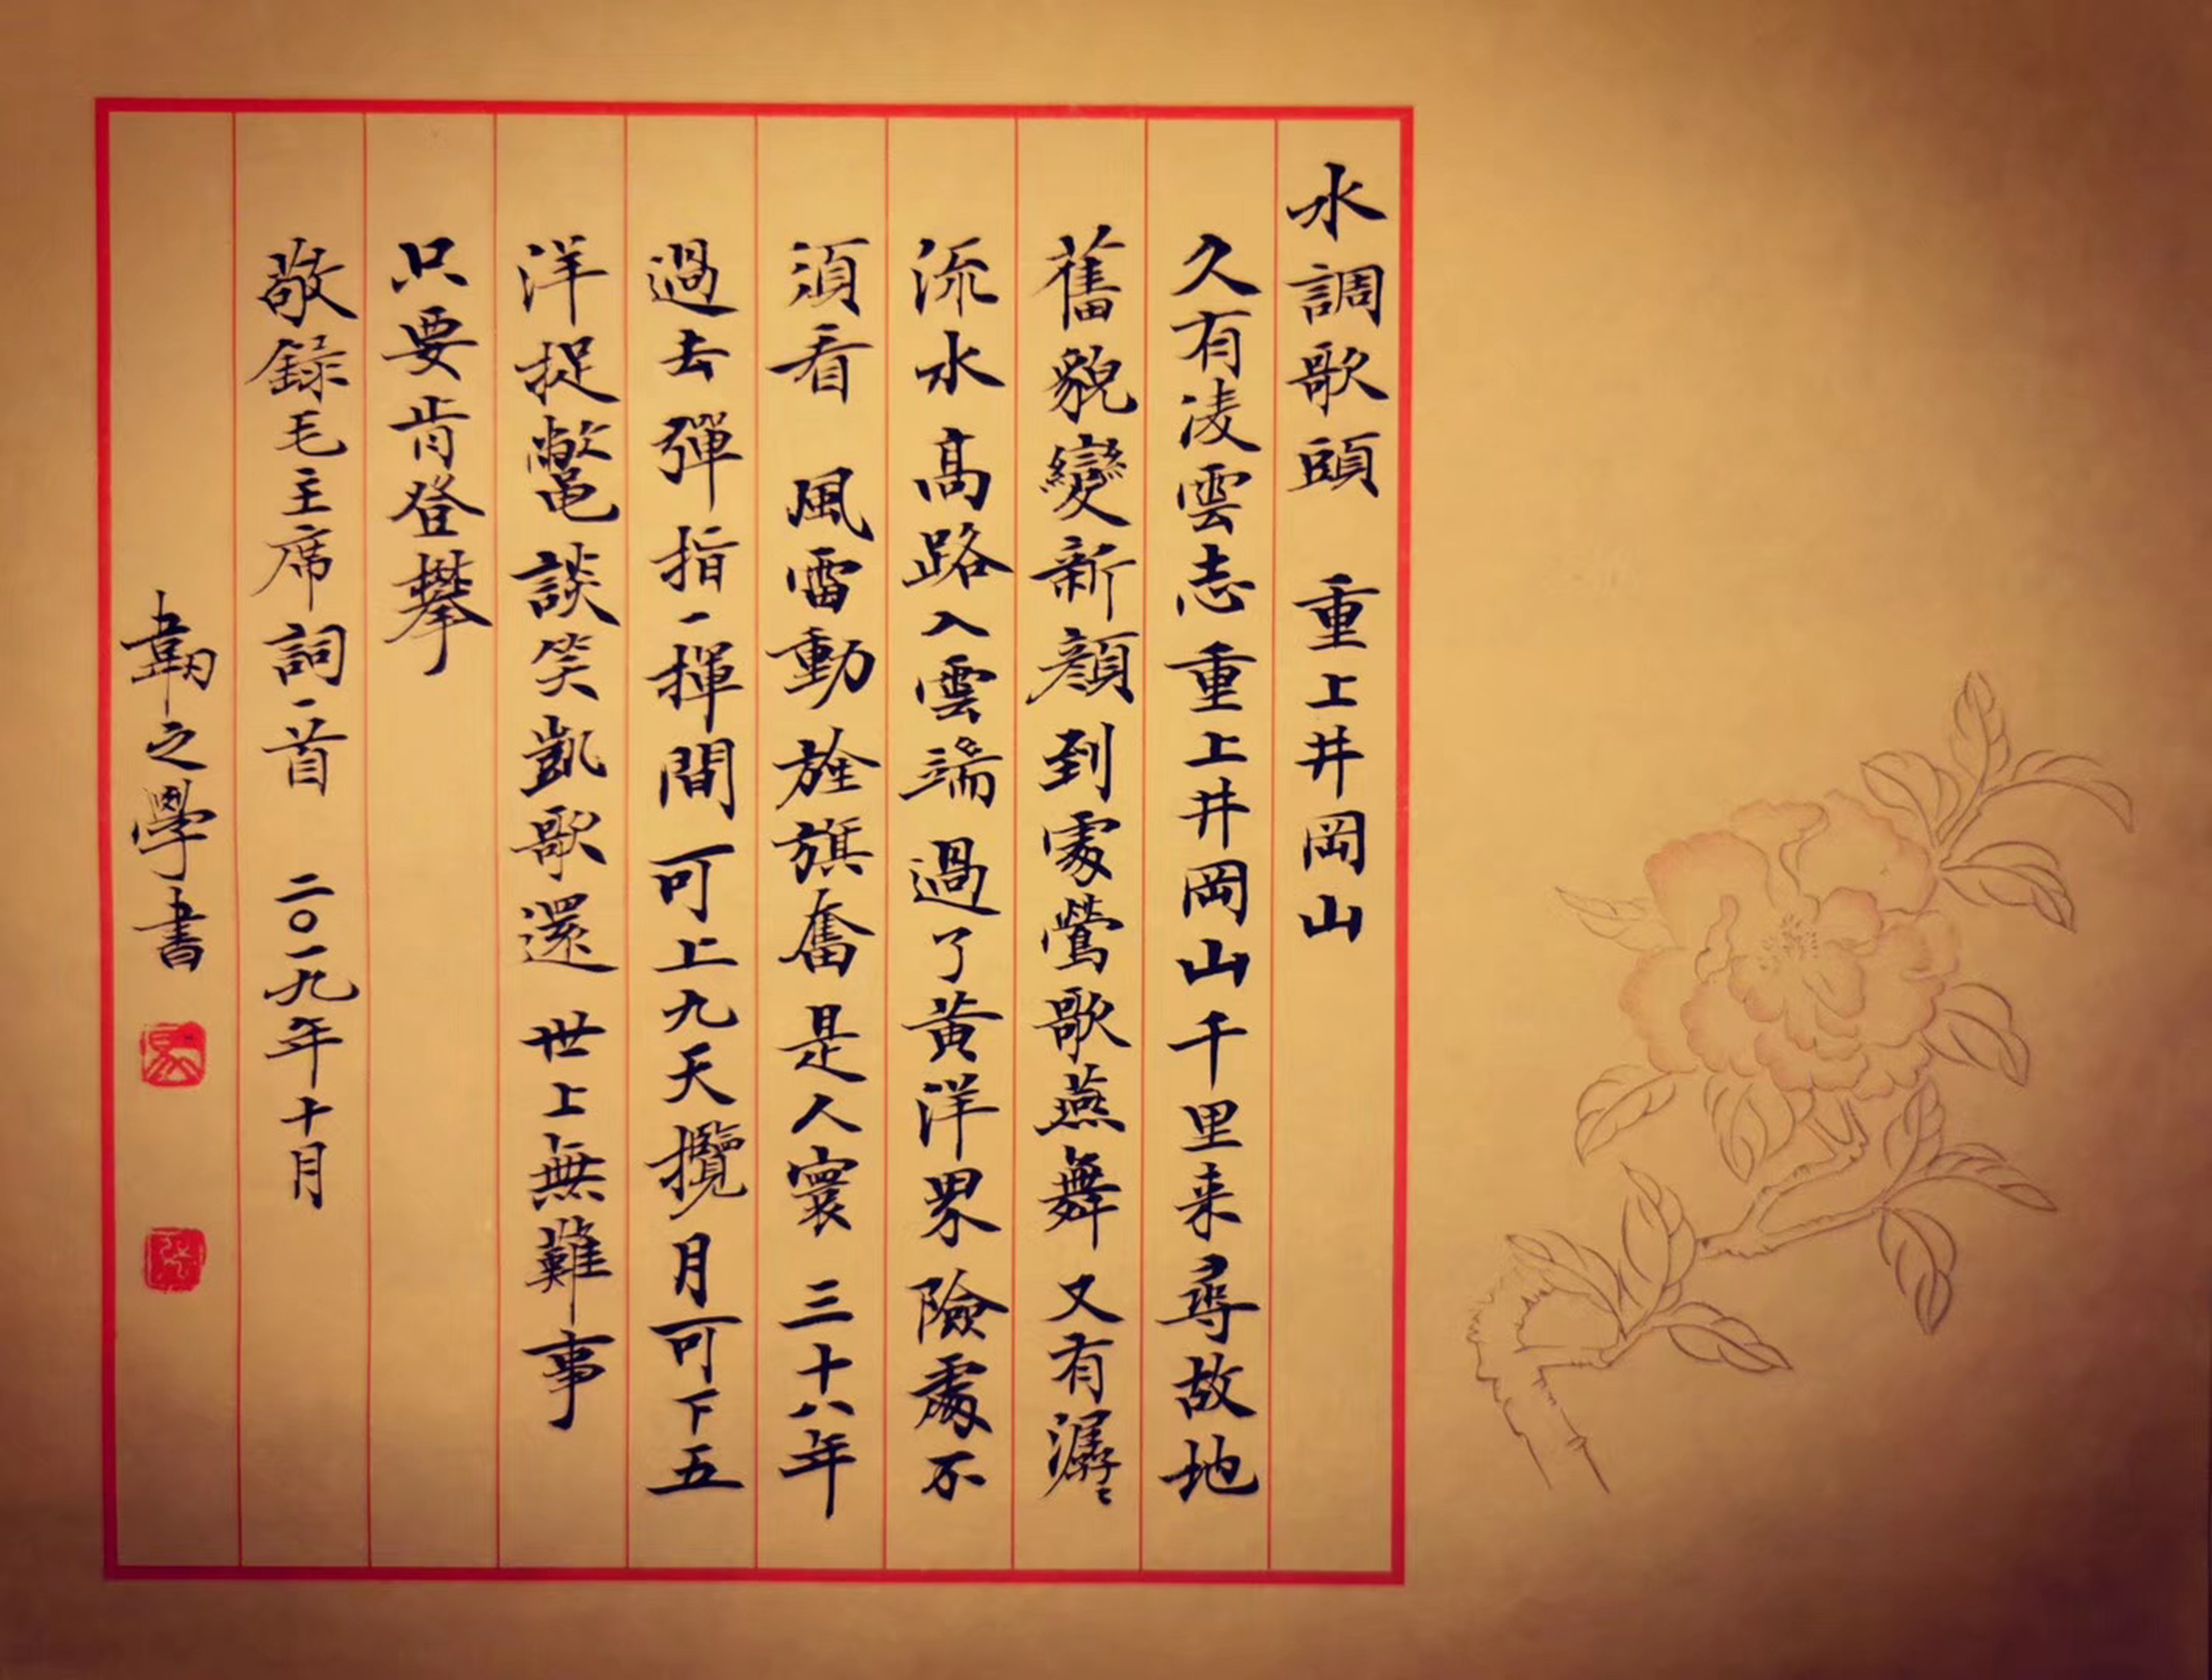 水調歌頭 重上井岡山
久有凌雲志重上井岡山千里来尋故地
舊貌變新顏到處鶯歌燕舞又有潺〻
流水高路入雲端過了黃洋界險處不
須看 風雷動旌旗奮是人寰三十八年
過去彈指一揮間可上九天攬月可下五
洋捉鱉談笑凱歌還世上無難事
只要肯登攀
敬錄毛主席詞一首 二〇一九年十月
韌之學書